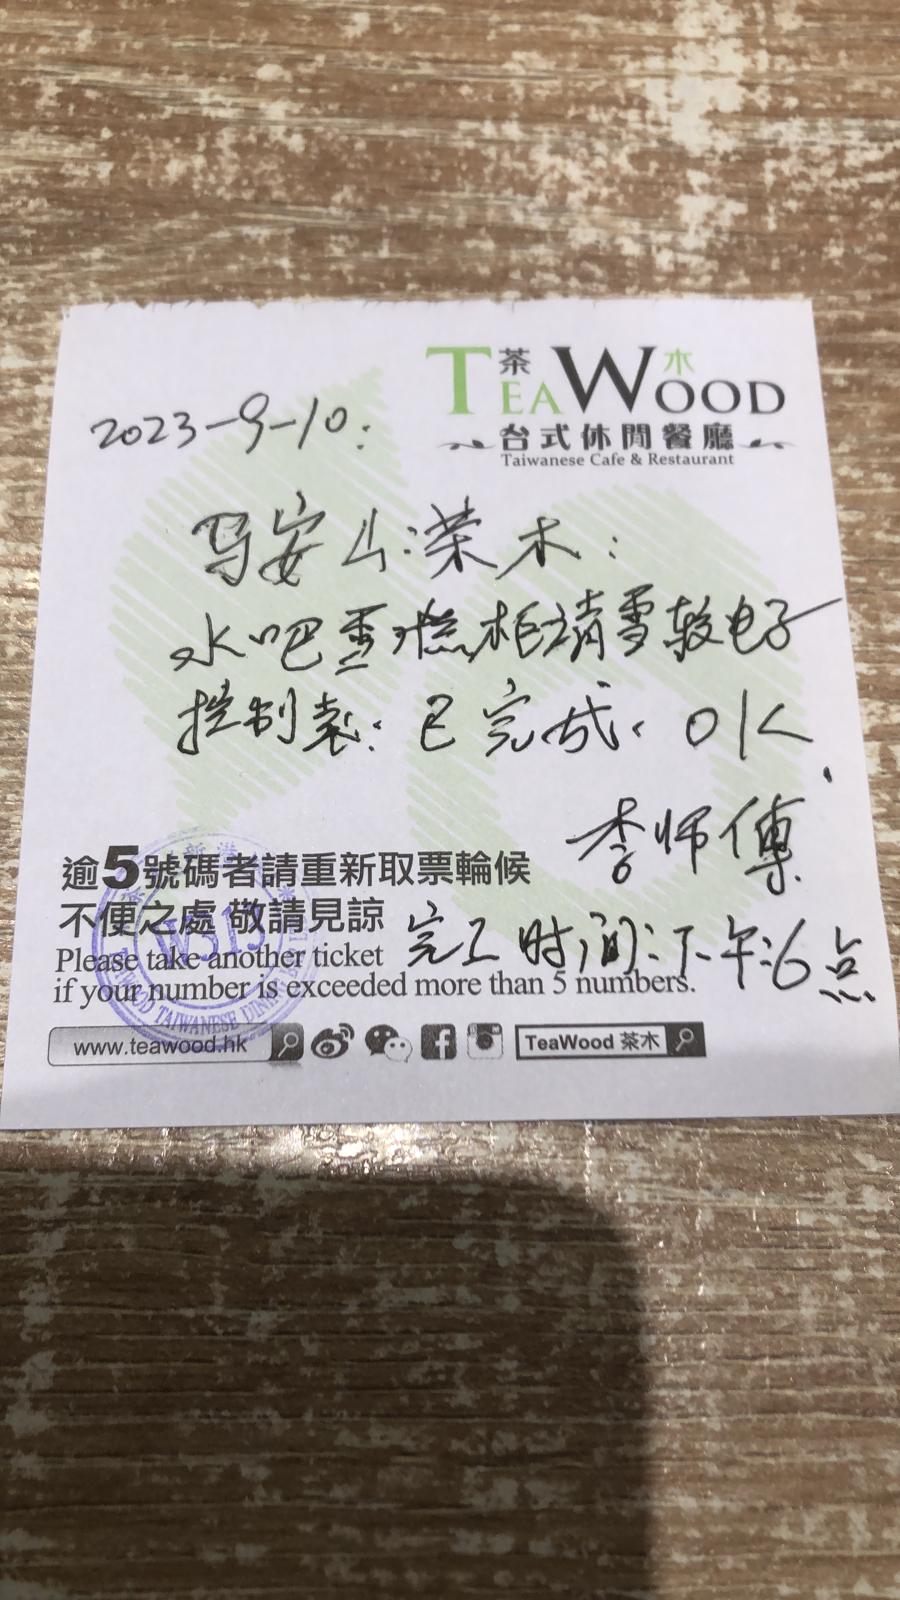 茶 木
TEAWOOD
台式休閒餐廳
Taiwanese Cafe & Restaurant
2023-9-10:
马安山:茶木:
水吧蛋糕柜
电子
控制
: 已完成. OK.
李师傅
完工时间:下午:6点
逾5號碼者請重新取票輪候
不便之處 敬請見諒
Please take another ticket
if your number is exceeded more than 5 numbers.
W313
TAIWANESE
www.teawood.hk
TeaWood 茶木